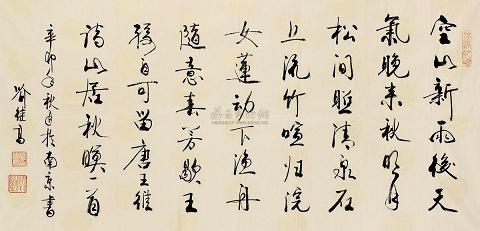 空山新雨後天
氣晚来秋明月
松間照清泉石
上流竹喧归浣
女蓮動下渔舟
隨意春芳歇王
孫自可留唐王維
诗山居秋暝一首
辛卯年秋月於南京書
喻继高